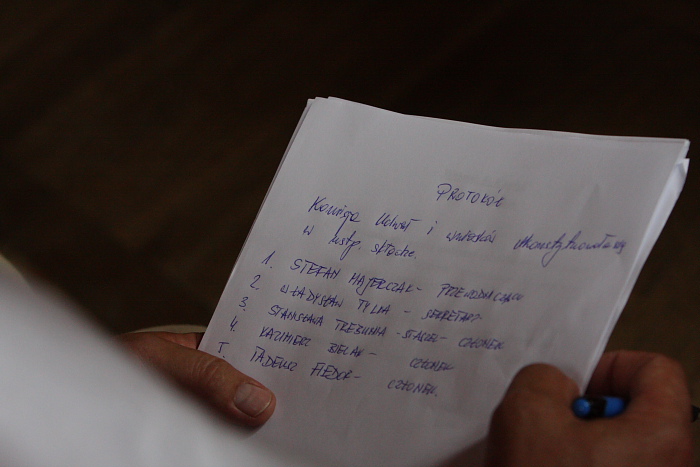 PROTOKÓŁ
Komisja Uchwał i wniosków ukonstytuowała się
w nstp. składzie.
1. STEFAN MAJERCZAK - PRZEWODNICZĄCY
2. WŁADYSŁAW TYLKA - SEKRETARZ
3. STANISŁAWA TREBUNIA - STASZEL - CZŁONEK
4. KAZIMIERZ BIELAK - CZŁONEK
5. TADEUSZ FIEDOR - CZŁONEK.